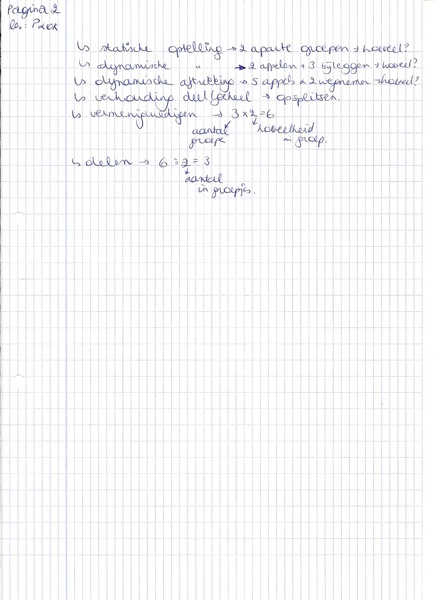 Pagina 2
↳ statische optelling → 2 aparte groepen → hoeveel?
↳ dynamische " → 2 appelen + 3 bijleggen → hoeveel?
↳ dynamische aftrekking → 5 appels & 2 wegnemen → hoeveel?
↳ verhouding deel/geheel → opsplitsen.
↳ vermenigvuldigen → 3 x 2 = 6
aantal hoeveelheid
groepen in groep.
↳ delen → 6 : 2 = 3
aantal
in groepjes.